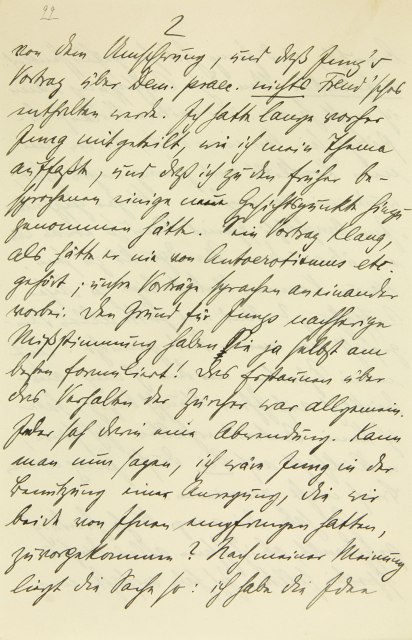 99
2
von dem Umschwung, und daß Jung's
Vortrag über Dem. praec. nichts Freud'sches
enthalten werde. Ich hatte lange vorher
Jung mitgeteilt, wie ich mein Thema
auffaßte, und daß ich zu den früher be-
sprochenen einige neue Gesichtspunkte hinzu-
genommen hätte. Sein Vortrag klang,
als hätte er nie von Autoerotismus etc.
gehört; unsre Vorträge sprachen aneinander
vorbei. Den Grund für Jungs nachherige
Mißstimmung haben Sie ja selbst am
besten formuliert! Das Erstaunen über
das Verhalten der Zürcher war allgemein.
Jeder sah darin eine Abwendung. Kann
man nun sagen, ich wäre Jung in der
Benutzung einer Anregung, die wir
beide von Ihnen empfangen hatten,
zuvorgekommen? Nach meiner Meinung
liegt die Sache so: ich habe die Idee